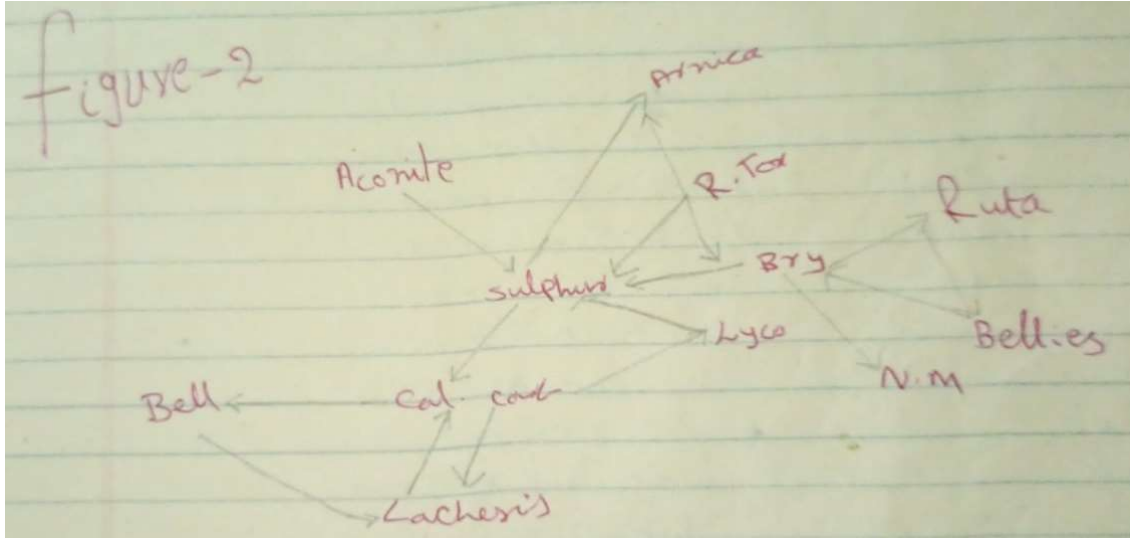 Figure-2
Arnica
Aconite
R. Tox
Ruta
Sulphur
Bry
Lyco
Bell.es
N.M
Bell
Cal. carb
Lachesis